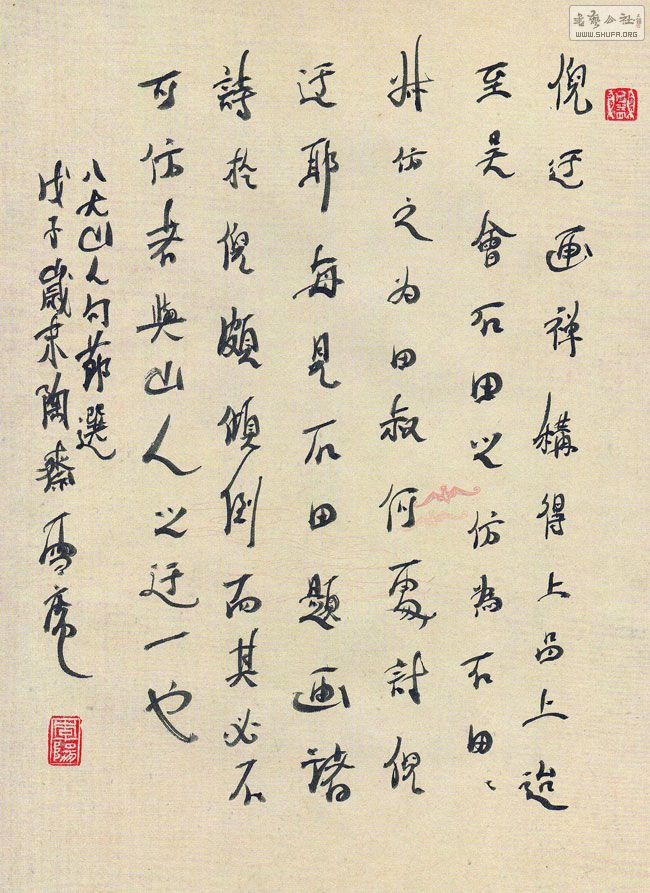 倪迂画禅稱得上品上迨
至吳會石田之仿為石田、
叔仿之为田叔何處討倪
迂耶每見石田題画諸
詩於倪頗傾倒而其必不
可仿者與山人之迂一也
八大山人句節選
戊子歲末陶齋
書藝公社
WWW.SHUFA.ORG